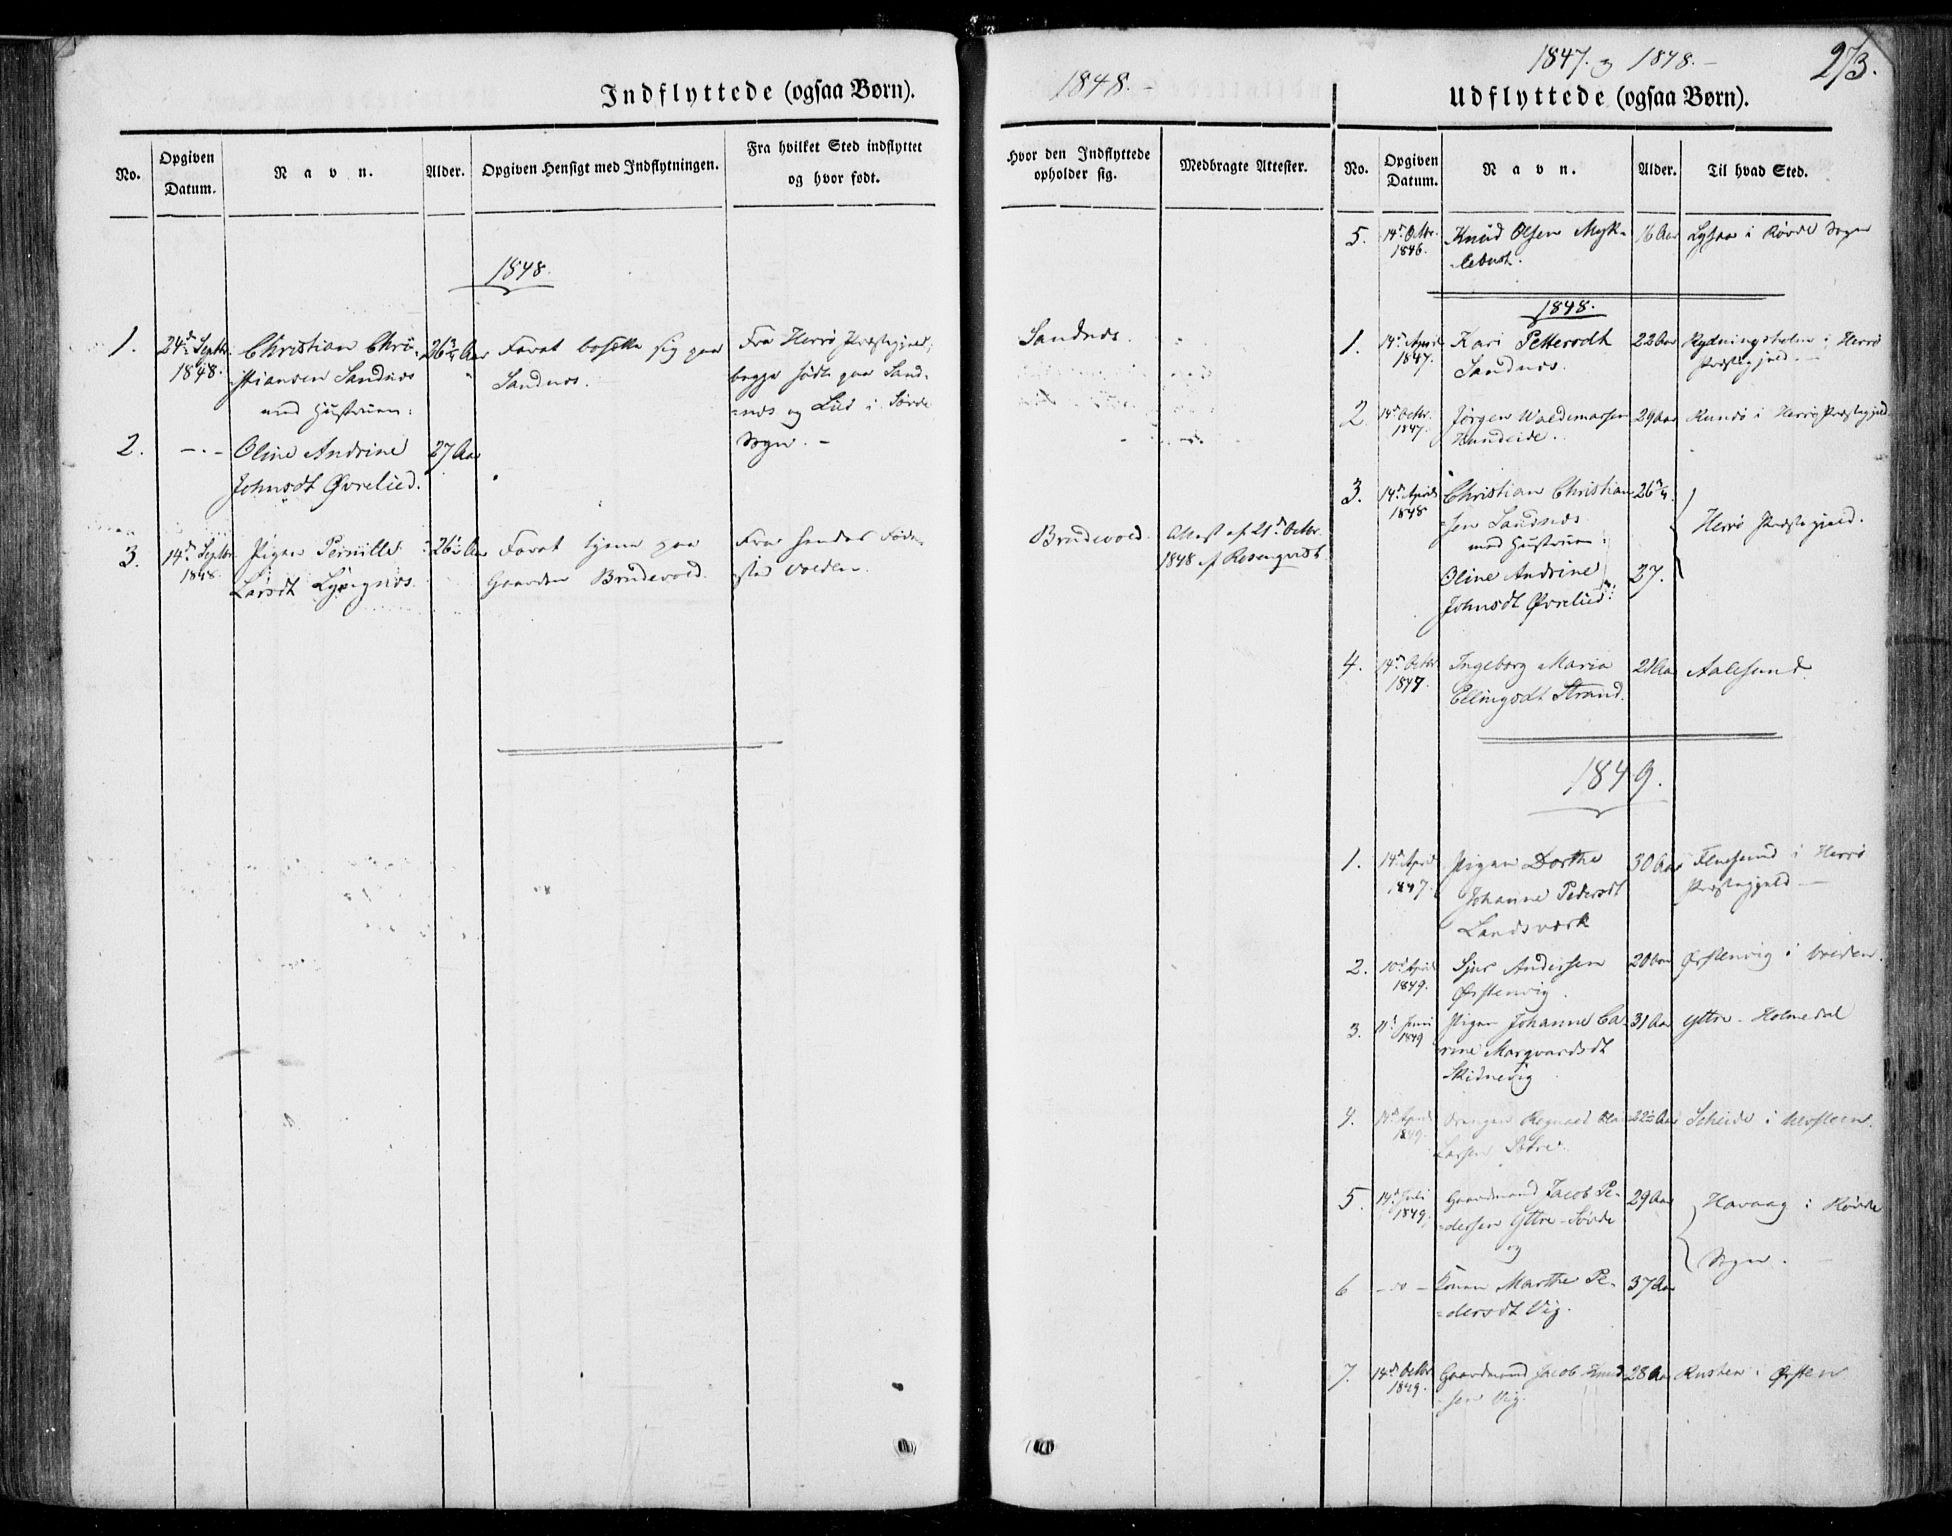 Indflyttede (ogsaa Børn).
No.
Opgiven
Datum.
Navn.
Alder.
Opgiven Hensigt med Indflytningen.
Fra hvilket Sted indflyttet
og hvor født.
1848.
1.
24de Septbr.
1848.
Christian Chri-
stiansen Sandnes
med Hustruen:
26 Aar
For at bosætte sig paa
Sandnes.
Fra Herrø Præstegjeld,
begge fødte paa Sand-
-næs og Lied i Sørde
Sogn. -
2.
- . -
Oline Andrine
Johnsdt Øvrelied.
27 Aar
3.
14de Septbr.
1848.
Pigen Pernille
Larsdt Lyngnes.
26 Aar
For at tjene paa
Gaarden Brudevold.
Fra hendes Føde-
sted Volden.
1848. -
Hvor den Indflyttede
opholder sig.
Medbragte Attester.
Sandnes.
Brudevold.
Attest af 21de Octbr.
1848 af Rosenqvist
1847. og 1848. -
273.
Udflyttede (ogsaa Børn).
No.
Opgiven
Datum.
Navn.
Alder.
Til hvad Sted.
5.
14de Octbr.
1846.
Knud Olsen Myk-
lebust.
16 Aar
i Røvde Sogn
1848.
1.
14de April
1847.
Kari Pettersdt
Sandnes.
22 Aar
Rydningsholm i Herrø
Præstegjeld. -
2.
14de Octbr.
1847.
Jørgen Waldemarsen
Hundeide.
29 Aar
Rundø i Herrø Præstegjeld
3.
14de April
1848
Christian Christian-
sen Sandnes
med Hustruen:
Oline Andrine
Johnsdt Øvrelied.
26
27.
Herrø Præstegjeld.
4.
14de Octbr.
1847.
Ingeborg Maria
Ellingsdt Strand.
21 Aar
Aalesund.
1849.
1.
14de April
1847.
Pigen Dorthe
Johanne Pedersdt
Landsværk
30 Aar
i Herrø
Præstegjeld -
2.
10de April
1849.
Sjur Andersen
Ørstenvig.
20 Aar
Ørstenvig i Volden.
3.
Juni
1849
Pigen Johanne Ca-
rine Marqvardsdt
Skidnevig
31 Aar
Yttre-Holmedal
4.
14de April
1849.
Drengen Rognald
Larsen Sætre.
22½ Aar
Scheide i
5.
14de Juli
1849.
Gaardmand Jacob Pe-
-dersen Yttre-Sørde
og
29 Aar
Havaag i Røvde
Sogn. -
6
- do -
Konen Marthe Pe-
-dersdt Vig.
37 Aar
7.
14de Octbr.
1849.
Gaardmand Jacob Knud-
sen Vig.
28 Aar
Rusten i Ørsten